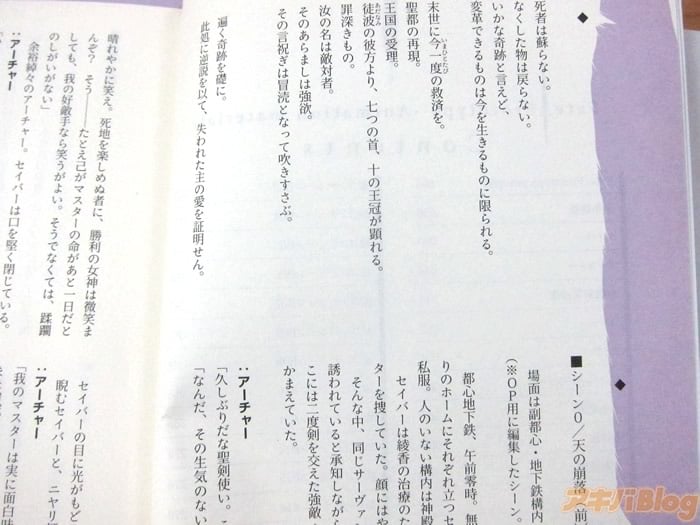 ◆
死者は蘇らない。
なくした物は戻らない。
いかな奇跡と言えど、
変革できるものは今を生きるものに限られる。
末世に今一度の救済を。
聖都の再現。
王国の受理。
徒波の彼方より、七つの首、十の王冠が顕れる。
罪深きもの。
汝の名は敵対者。
そのあらましは強欲。
その言祝ぎは冒涜となって吹きすさぶ。
遍く奇跡を礎に。
此処に逆説を以て、失われた主の愛を証明せん。
◆
■シーン0／天の崩落 前
場面は副都心・地下鉄構内
（※OP用に編集したシーン。
都心地下鉄、午前零時。無
りのホームにそれぞれ立つセ
私服。人のいない構内は神殿
セイバーは綾香の治療のた
ターを捜していた。顔にはや
そんな中、同じサーヴァン
誘われていると承知しながら
こには二度剣を交えた強敵
かまえていた。
：アーチャー
「久しぶりだな聖剣使い。こ
「なんだ、その生気のない
晴れやかに笑え。死地を楽しめぬ者に、勝利の女神は微笑ま
んぞ？　そう――たとえ己がマスターの命があと一日だと
しても、我の好敵手なら笑うがよい。そうでなくては、蹂躙
のしがいがない」
余裕綽々のアーチャー。セイバーは口を堅く閉じている。
：アーチャー
セイバーの目に光がもど
睨むセイバーと、ニヤリ
：アーチャー
「我のマスターは実に面白味
アキバBlog